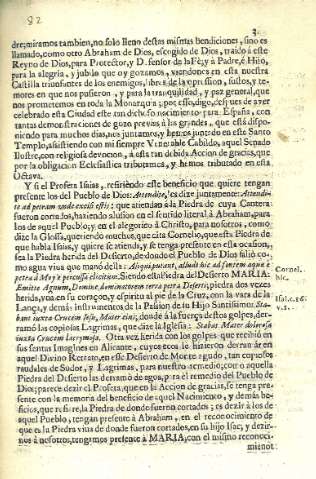 82
3
dre; miramos tambien, no solo lleno destas mismas bendiciones, sino es
llamado, como otro Abraham de Dios, escogido de Dios, traido à este
Reyno de Dios, para Protector, y Defensor de la Fè; y à Padre, è Hijo,
para la alegria, y jubilo que oy gozamos, viendonos en esta nuestra
Castilla triunfantes de los enemigos, libres de la opression, sustos, y te-
mores en que nos pusieron, y para la tranquilidad, y paz general, que
nos prometemos en toda la Monarquia; por esso, digo, despues de aver
celebrado esta Ciudad este tan dichoso nacimiento para España, con
tantas demonstraciones de gozo previas à las grandes, que està dispo-
niendo para muchos dias, nos juntamos, y hemos juntado en este Santo
Templo, assistiendo con mi siempre Venerable Cabildo, aquel Senado
Ilustre, con religiosa devocion, à esta tan debida Accion de gracias, que
por la obligacion Eclesiastica tributamos, y hemos tributado en esta
Octava.
Y si el Profeta Isaias, refiriendo este beneficio que quiere tengan
presente los del Pueblo de Dios: Attendite, les dize juntamente: Attendi-
te ad petram unde excisi estis: que atiendan à la Piedra de cuya Cantera
fueron cortados, haziendo alusion en el sentido literal à Abraham, para
los de aquel Pueblo; y en el alegorico à Christo, para nosotros, como
dize la Glossa, queriendo muchos, que cita Cornelio, que esta Piedra de
que habla Isaias, y quiere se atienda, y se tenga presente en esta ocasion,
sea la Piedra herida del Desierto, de donde el Pueblo de Dios saliò co-
mo agua viva que manò della: Aliqui putant, alludi hic ad fontem aquæ è
petra à Moyse percussa elicitum. Siendo esta Piedra del Desierto MARIA:
Cornel.
hic.
Emitte Agnum, Domine, dominatorem terræ petra Deserti; piedra dos vezes
herida, yà en su coraçon, y espiritu al pie de la Cruz, con la vara de la
Isai. c. 16.
v. 1.
Lança, y demàs instrumentos de la Passion de su Hijo Santissimo: Sta-
bat iuxta Crucem Iesu, Mater eius; donde à la fuerça destos golpes, der-
ramò las copiosas Lagrimas, que dize la Iglesia: Stabat Mater dolorosa
iuxta Crucem lacrymosa. Otra vez herida con los golpes que recibiò en
sus santas Imagines en Alicante, cuyos ecos le hizieron derramar en
aquel Divino Retrato, en esse Desierto de Monte agudo, tan copiosos
raudales de Sudor, y Lagrimas, para nuestro remedio; con o aquella
Piedra del Desierto las derramò de agua, para el remedio del Pueblo de
Dios; parece dezir el Profeta, que en la Accion de gracias, se tenga pre-
sente con la memoria del beneficio de aquel Nacimiento, y demàs be-
ficios, que refiere, la Piedra de donde fueron cortados; es dezir à los de
aquel Pueblo, tengan presente à Abraham, en el reconocimiento de
que es la Piedra viva de donde fueron cortados, en su hijo Isac, y dezir-
nos à nosotros, tengamos presente à MARIA, con el mismo reconoci-
mienot